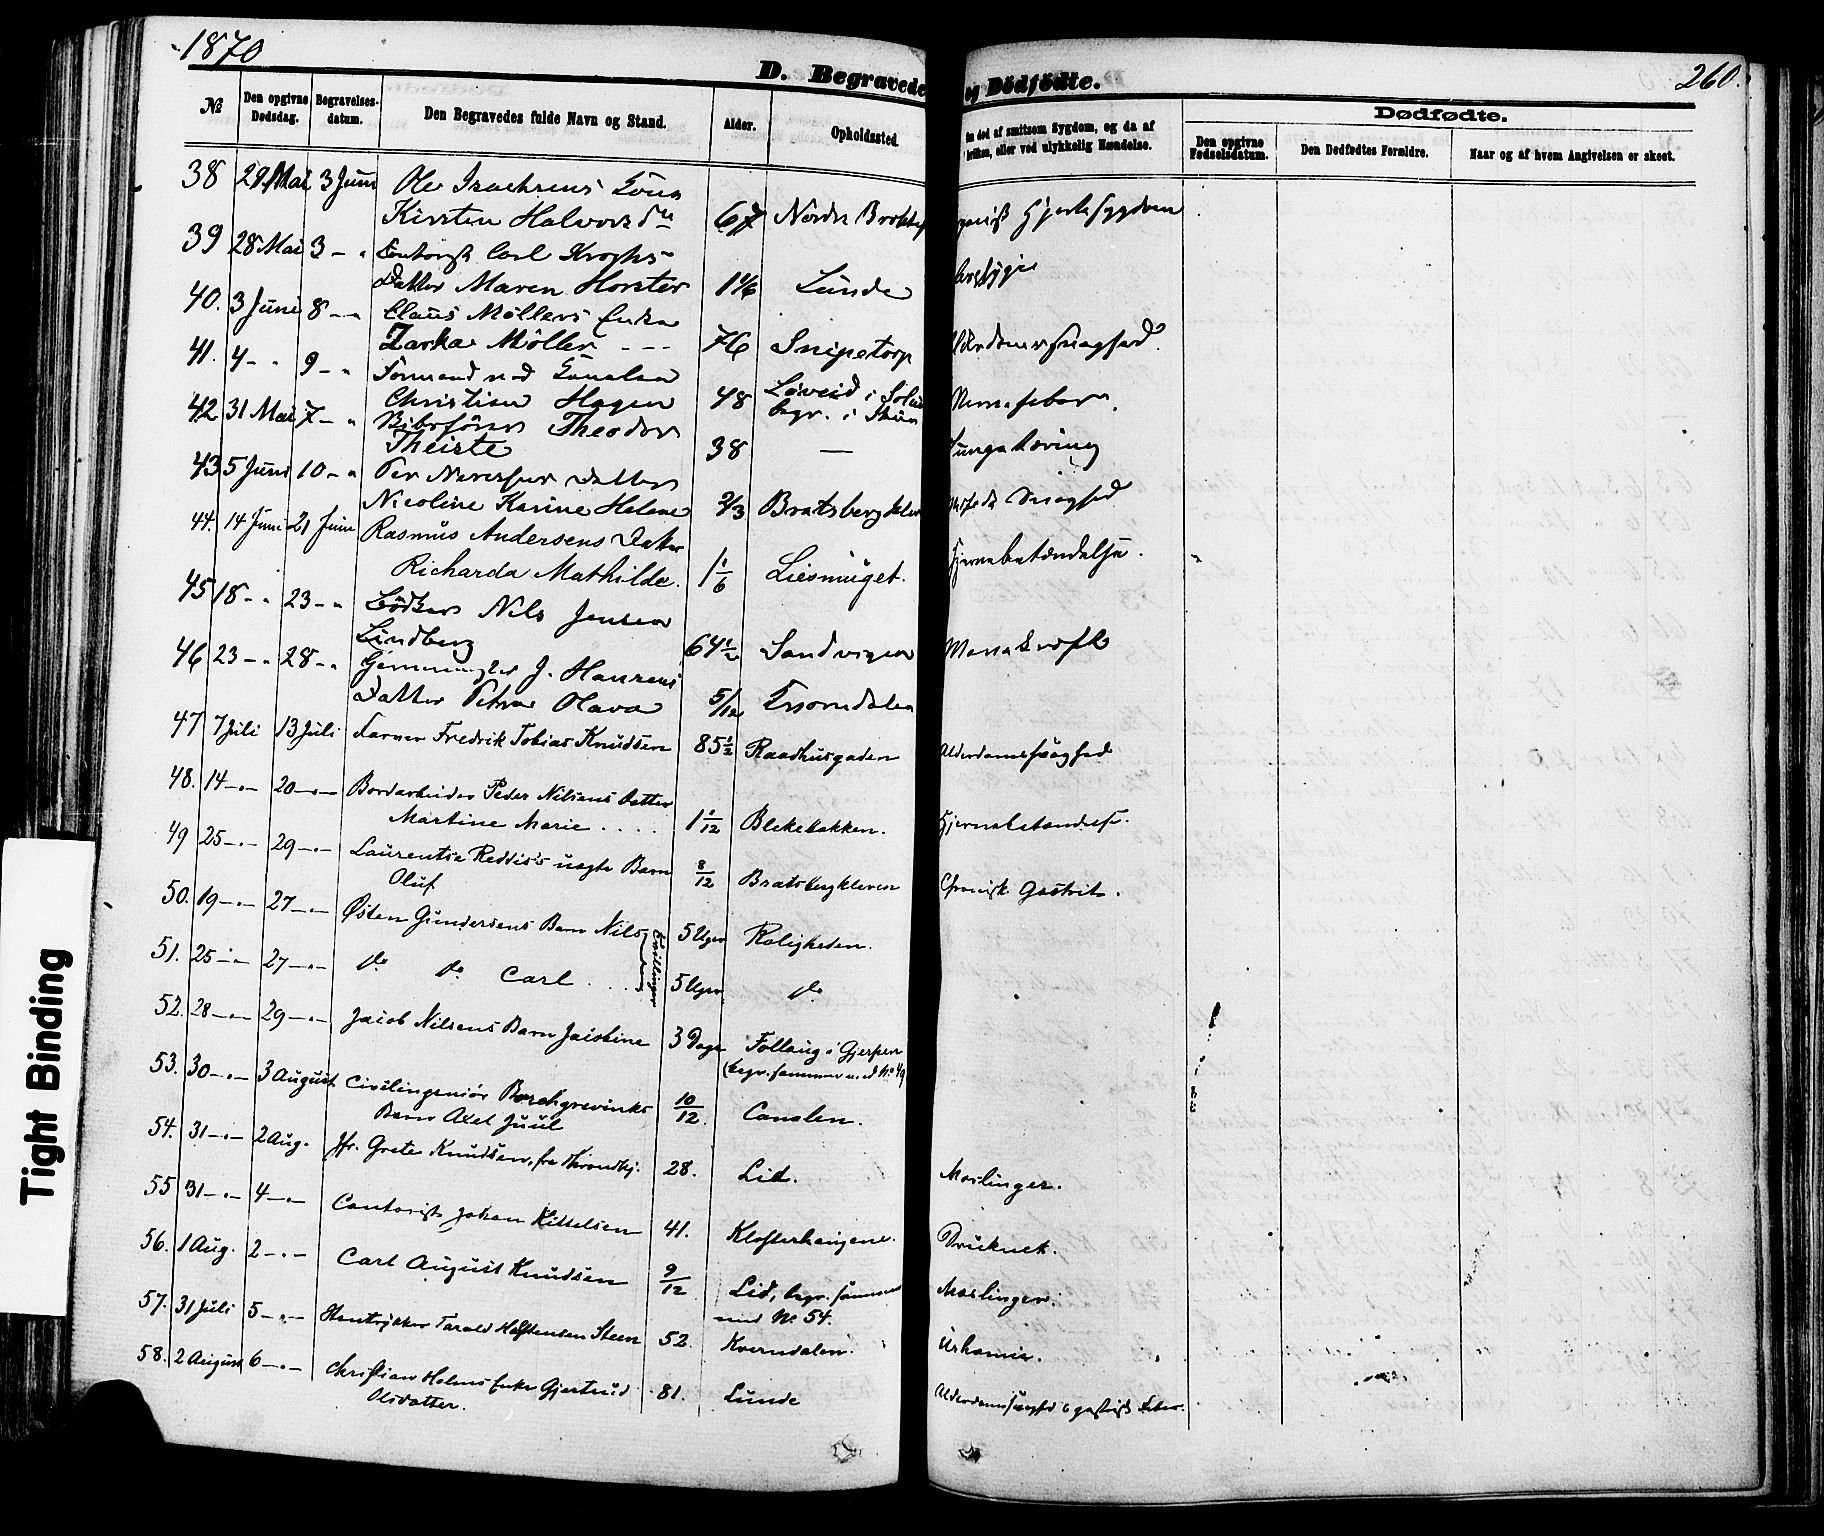 1870
260.
D. Begravede og Dödfödte.
№
Den opgivne Dødsdag.
Begravelses-datum.
Den Begravedes fulde Navn og Stand.
Alder.
Opholdssted.
død af smitsom Sygdom, og da af
hvilken, eller ved ulykkelig Hændelse.
Dødfødte.
Den opgivne Fødselsdatum.
Den Dødfødtes Forældre.
Naar og af hvem Angivelsen er skeet.
38 29 Mai 3 Juni Ole Kona
Kirsten Halvorsdtr 67 Nordre Hjertesygdom
39 28 Mai 3 - " Contorist Carl Kroghs
Datter Maren Horster 1 1/6 Lunde
40. 3 Juni 8 - " Claus Møllers Enke
Møller - - - 76 Snipetorp Alderdomssvaghed.
41. 4 - " 9 - " Formand ved
Christian Hagen 48 Løveid i
begr. i Skien Nervefeber.
42 31 Mai 7 - " Theodor
Theiste 38 — Lungetæring
43 5 Juni 10 - " Per Datter
Nicoline Karine Helene 2/3 Bratsbergklev Svaghed
44. 14 Juni 21 Juni Rasmus Andersens Datter
Richarda Mathilde. 1 1/6 Liesmuget. Hjernebetændelse.
45 18 - " 23 - " Bødker Nils Jensen
Lindberg 64 1/2 Sandvigen Mavekræft
46 23 - " 28 - " J. Hansens
Datter Petra Olava 5/12
47 7 Juli 13 Juli Farver Fredrik Tobias Knudsen 85 1/2 Raadhusgaden Alderdomssvaghed
48. 14 - " - 20 - " - Bordarbeider Peder Nilsens Datter
Martine Marie . . . . 1 1/12 Blekebakken. Hjernebetændelse.
49 25 - " - 29 - " - Laurentse uægte Barn
Oluf 8/12 Bratsbergkleven Chronisk Gastrit.
50. 19 - " - 27 - " - Østen Gundersens Barn Nils 5 Uger Roligheden.
Tvillinger
51. 25 - " - 27 - " - do do Carl . . . . 5 Uger do
52. 28 - " - 29 - " - Jacob Nilsens Barn Jacobine 3 Dage Follaug i Gjerpen
(begr. sammen med No 49
53. 30 - " - 3 August Civilingeniør Borchgrevinks
Barn Axel Juul 10/12. Canalen.
54. 31 - " - 2 Aug. Jfr. Grete Knudsen, fra Throndhj. 28. Lid. Mæslinger.
55 31 - " - 4 - " - Contorist Johan Kittelsen 41. Klosterhaugene. Druknet.
56. 1 Aug. 2 - " - Carl August Knudsen 9/12 Lid, begr. sammen
med No 54. Mæslinger.
57. 31 Juli 5 - " - Tarald Halstensen Steen 52. Kverndalen. Urhæmie.
58. 2 August 6 - " - Christian Holms Enke Gjertrud
Olsdatter. 81. Lunde Alderdomssvaghed & gastrisk Feber.
Tight Binding